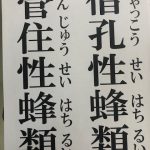 ゃっこう せい はち るい
借孔性蜂類
んじゅう せい はち るい
管住性蜂類